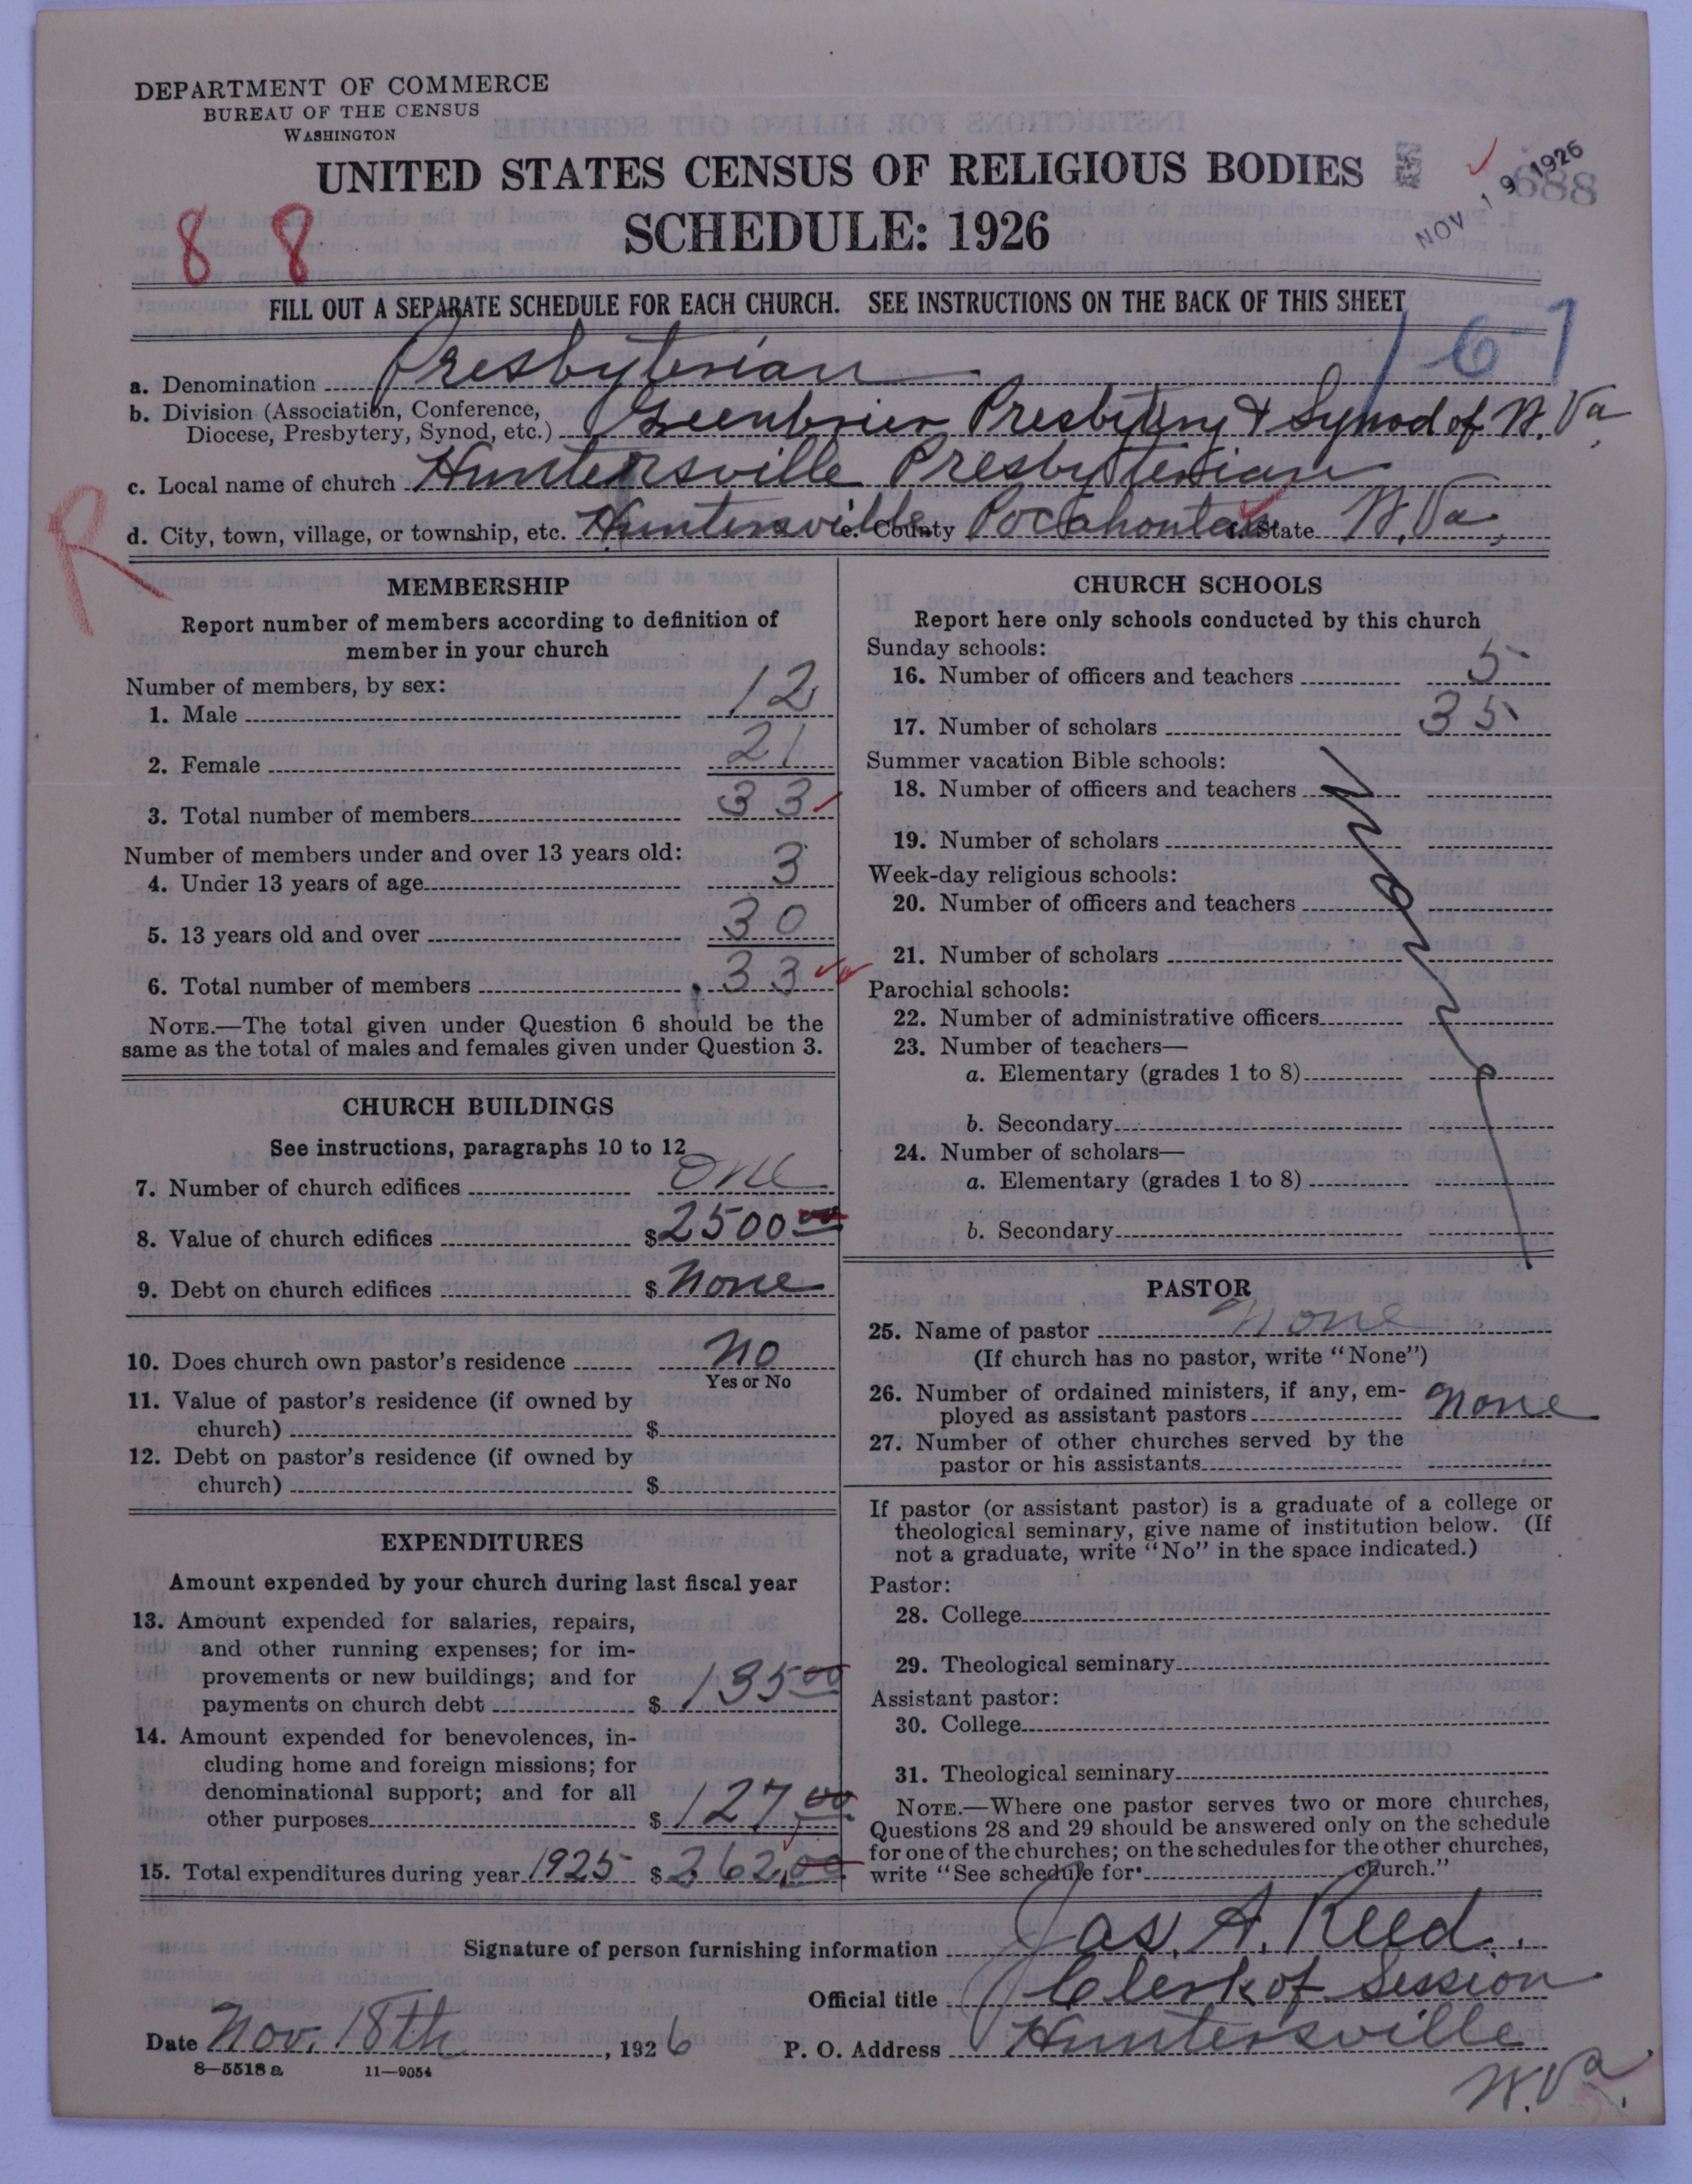 DEPARTMENT OF COMMERCE
BUREAU OF THE CENSUS
WASHINGTON
UNITED STATES CENSUS OF RELIGIOUS BODIES
SCHEDULE: 1926
NOV 19 1926
688
8 8
FILL OUT A SEPARATE SCHEDULE FOR EACH CHURCH. SEE INSTRUCTIONS ON THE BACK OF THIS SHEET
a. Denomination Presbyterian
b. Division (Association, Conference, Diocese, Presbytery, Synod, etc.) Greenbrier Presbytery & Synod of W. Va.
c. Local name of church Huntersville Presbyterian
R
d. City, town, village, or township, etc. Huntersville e. County Pocahontas f. State W. Va.
MEMBERSHIP
Report number of members according to definition of
member in your church
Number of members, by sex:
1. Male 12
2. Female 21
3. Total number of members 33
Number of members under and over 13 years old:
4. Under 13 years of age 3
5. 13 years old and over 30
6. Total number of members 33
NOTE.—The total given under Question 6 should be the
same as the total of males and females given under Question 3.
CHURCH BUILDINGS
See instructions, paragraphs 10 to 12
7. Number of church edifices one
8. Value of church edifices $2500 00
9. Debt on church edifices $ none
10. Does church own pastor's residence no
Yes or No
11. Value of pastor's residence (if owned by
church) $
12. Debt on pastor's residence (if owned by
church) $
EXPENDITURES
Amount expended by your church during last fiscal year
13. Amount expended for salaries, repairs,
and other running expenses; for im-
provements or new buildings; and for
payments on church debt $ 135 00
14. Amount expended for benevolences, in-
cluding home and foreign missions; for
denominational support; and for all
other purposes $ 127,00
15. Total expenditures during year 1925 $ 262,00
CHURCH SCHOOLS
Report here only schools conducted by this church
Sunday schools:
16. Number of officers and teachers 5
17. Number of scholars 35
Summer vacation Bible schools:
18. Number of officers and teachers
19. Number of scholars
Week-day religious schools:
20. Number of officers and teachers
21. Number of scholars
Parochial schools:
22. Number of administrative officers
23. Number of teachers—
a. Elementary (grades 1 to 8)
b. Secondary
24. Number of scholars—
a. Elementary (grades 1 to 8)
b. Secondary
PASTOR
25. Name of pastor none
(If church has no pastor, write "None")
26. Number of ordained ministers, if any, em-
ployed as assistant pastors none
27. Number of other churches served by the
pastor or his assistants
If pastor (or assistant pastor) is a graduate of a college or
theological seminary, give name of institution below. (If
not a graduate, write "No" in the space indicated.)
Pastor:
28. College
29. Theological seminary
Assistant pastor:
30. College
31. Theological seminary
NOTE.—Where one pastor serves two or more churches,
Questions 28 and 29 should be answered only on the schedule
for one of the churches; on the schedules for the other churches,
write "See schedule for church."
Signature of person furnishing information Jas. A. Reed.
Official title Clerk of Session
Date Nov. 18th, 1926 P. O. Address Huntersville
W. Va.
8—5518 a 11—9054